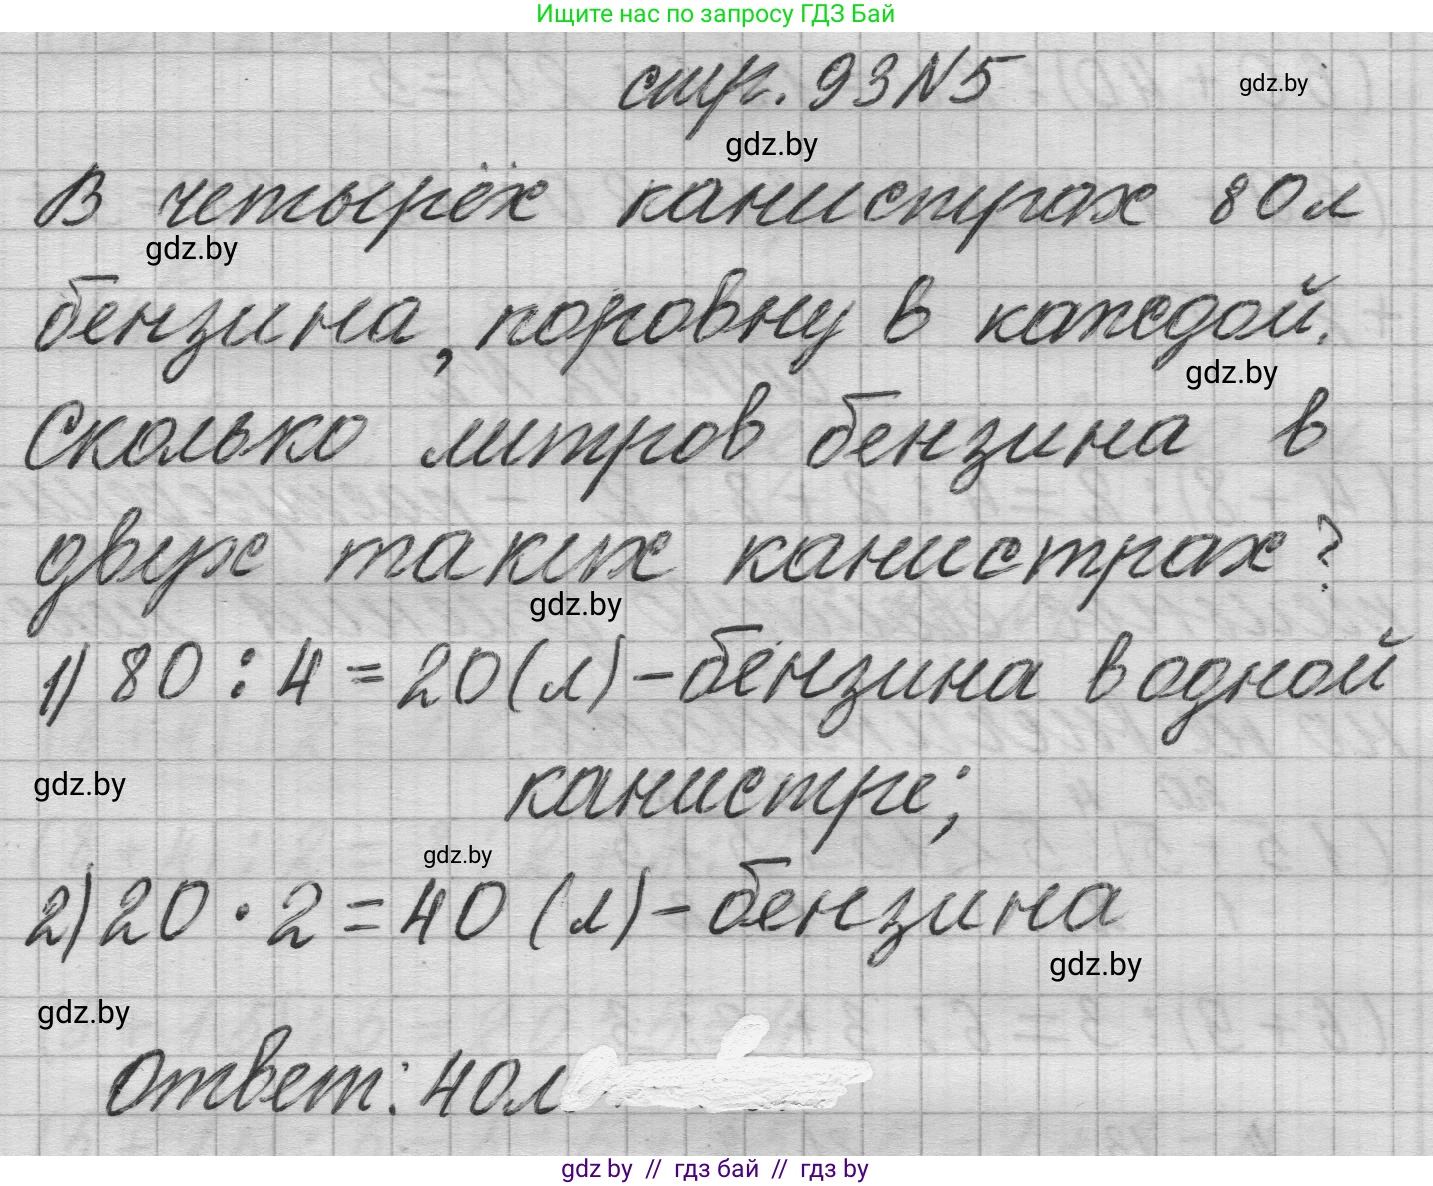 Ищите нас по запросу ГДЗ Бай
стр. 93 N5
gdz.by
gdz.by
В четырёх канистрах 80 л
gdz.by
бензина, поровну в каждой.
gdz.by
Сколько литров бензина в
двух таких канистрах?
gdz.by
1) 80 : 4 = 20 (л) - бензина в одной
канистре;
gdz.by
gdz.by
2) 20 · 2 = 40 (л) - бензина
gdz.by
gdz.by
Ответ: 40л
gdz.by // гдз бай // гдз by